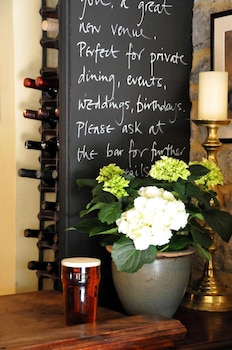 a great
new venue.
Perfect for private
dining, events,
weddings, birthdays.
Please ask at
the bar for further